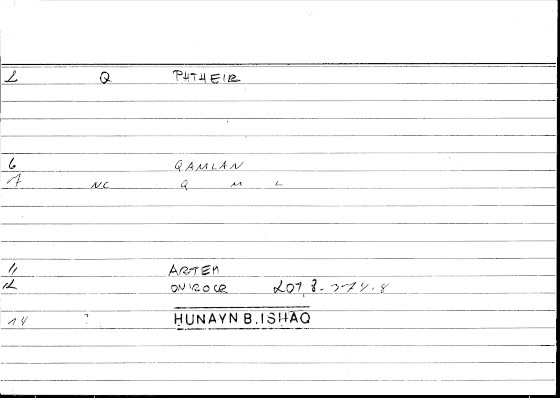 2 Q PHTHEIR
6 QAMLAN
7 NC Q M L
11 ARTEM
12 ONIROCR 207,8-274,8
14 ? HUNAYN B. ISHAQ